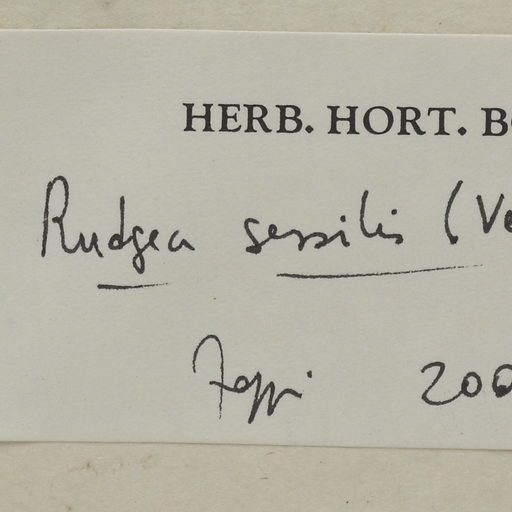 HERB. HORT. B
Rudgea sessilis (Ve
Zappi 200